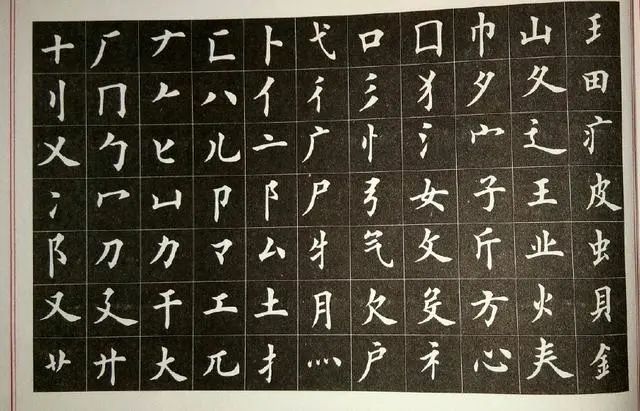 十厂𠂇匚卜弋口囗巾山𤣩
刂冂𠂉八亻彳彡犭夕夂田
乂勹匕儿亠广忄氵宀辶疒
冫冖凵卩阝尸弓女子王皮
阝刀力龴厶牜气文斤业虫
又廴干工土月欠殳方火貝
艹廾大兀扌灬户礻心𡗗金